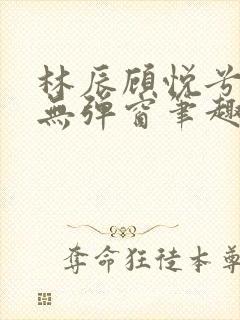 林辰顾悦兮
無弹窗筆趣
奪命狂徒本尊